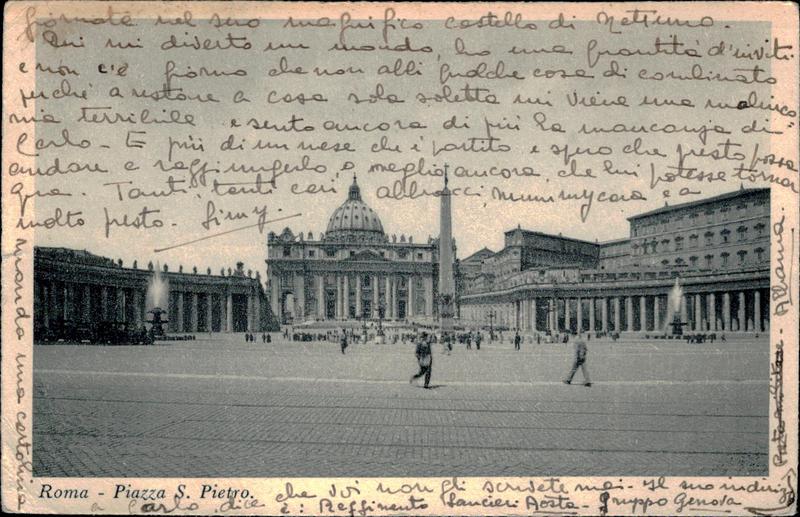 giornate nel suo magnifico castello di Nettuno.
Qui mi diverto un mondo, ho una quantità d'inviti
e non c'è giorno che non abbi qualche cosa di combinato
perchè a restare a casa sola soletta mi viene una malinco-
nia terribile e sento ancora di più la mancanza di
Carlo - E più di un mese che è partito e spero che presto possa
andare a raggiungerlo, o meglio ancora che lui potesse tornar
qua. Tanti, tanti cari abbracci, mummy cara e a
molto presto. Simy.
manda una cartolina
a Carlo, dice che voi non gli scrivete mai - Il suo indirizzo
è: Reggimento Lancieri Aosta - Gruppo Genova
Albania
Roma - Piazza S. Pietro.